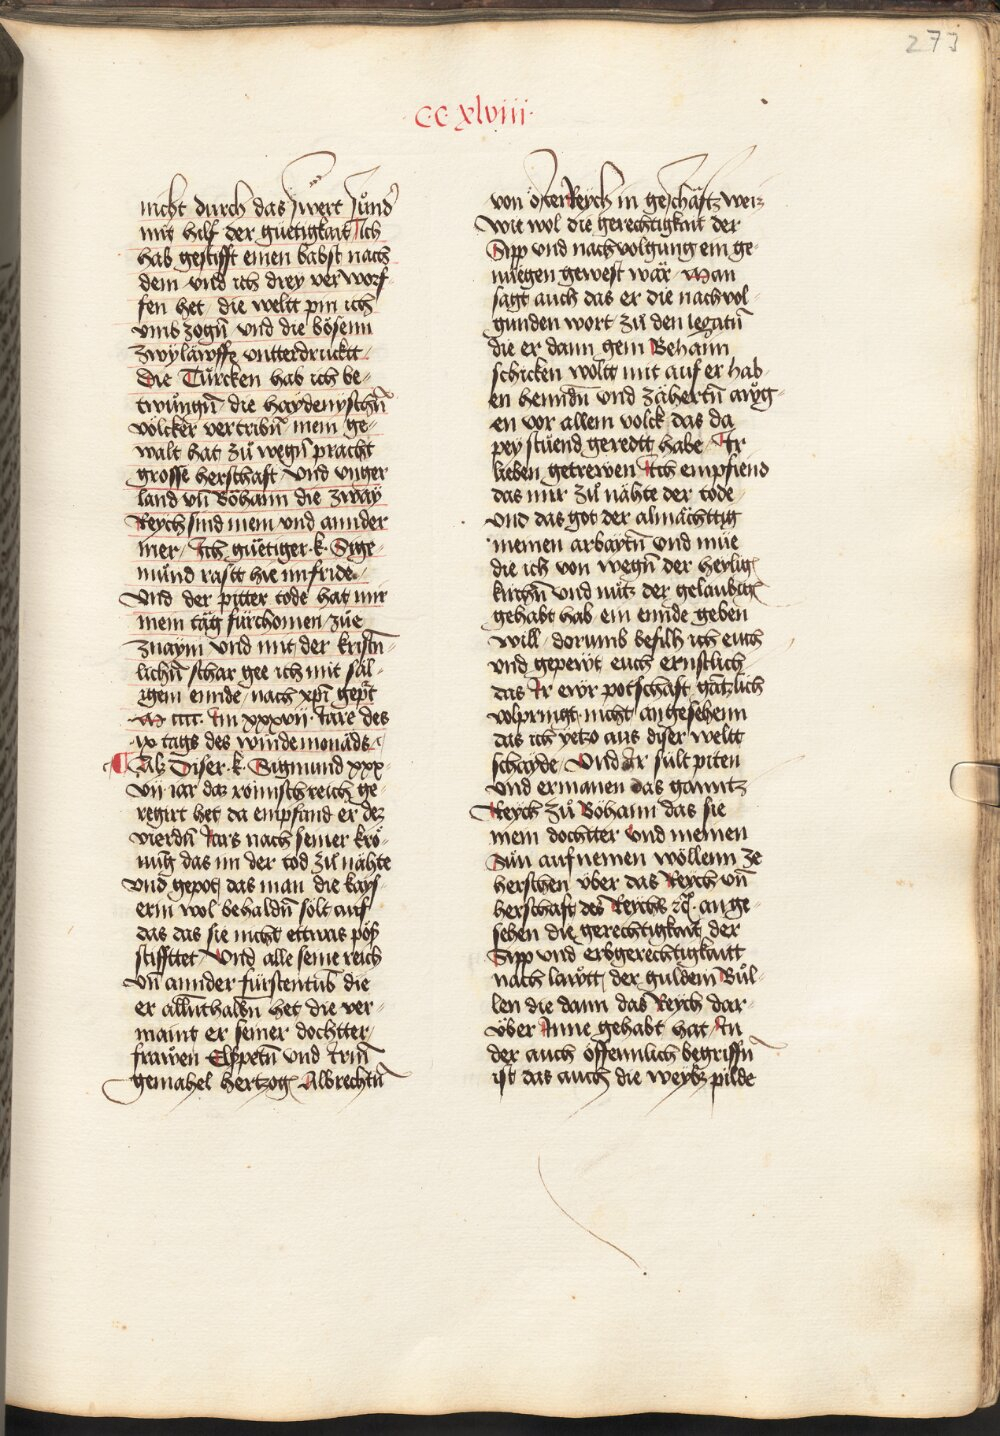 273
CC xlviii
nicht durch das swert sunder
mit hilf der güetigkait Ich
hab gestifft einen babst nach
dem vnd ich drey verworf-
fen het die weltt pin ich
vmb zogn̄ vnd die bösenn
zwyläwffe vntterdrucktt
die Türcken hab ich be-
twůngn̄ die haydenyschn̄
völcker vertribn̄ mein ge-
walt hat zů wegn̄ pracht
grosse herschaft vnd vnger
land vn̄ Böhann die zway
Reych sind mein vnd annder
mer Ich güetiger k. Sige-
műnd rastt hie im fride
vnd der pitter tode hat mir
mein täg fürchomen züe
znaym vnd mit der kristn̄
lichn̄ schar gee ich mit säl-
igem ennde nach xp̄i gepűt
M cccc Im xxxvij Jare des
ix tags des windemonäds
Alz diser k. Sigmund xxx
vij iar daz römisch reich ge-
regirt het da empfand er dez
vierdn̄ Jars nach seiner krö-
nūg das im der tod zů nähte
vnd gepot das man die kays-
erin wol behaldn̄ solt auf
das das sie nicht ettwas pöß
stiffttet Vnd alle seine reich
vn̄ annder fürstentūb die
er allnthalbn̄ het die ver-
maint er seiner dochtter
frawen Elßpetn̄ vnd Irm̄
gemahel hertzog Albrechtn̄
von österReych in geschäftz weiz
wie wol die gerechtigkait der
Sipp vnd nachvolgung ein ge-
nűegen gewest wär Man
sagt auch das er die nachvol-
gunden wort zů den legatn̄
die er dann gein Behann
schicken woltt mit auf er hab-
en henndn̄ vnd zähertn̄ awg-
en vor allem volck das da
pey stűend geredtt habe Ir
lieben getrewen Ich empfiend
das mir zů nähte der tode
vnd das got der almächttig
meinen arbaytn̄ vnd műe
die ich von wegn̄ der heylign̄
kirchn̄ vnd nutz der gelaubign̄
gehabt hab ein ennde geben
will dorumb befilh ich euch
vnd gepewt euch ernstlich
das Ir ewr potschaft gätzlich
volpringt nicht angesehenn
das ich yetzo aus diser weltt
schayde Vnd Ir sült piten
vnd ermanen das ganntz
Reych zů Böhann das sie
mein dochtter vnd meinen
Sűn aufnemen wöllenn ze
herschen über das Reych vn̄
herschaft des Reychs ꝛc̄. ange-
sehen die gerechtigkait der
Sipp vnd erbgerechtigkaitt
nach lawtt der guldein Bul-
len die dann das Reych dar-
über Inne gehabt hat In
der auch öffennlich begriffn̄
ist das auch die weybz pilde